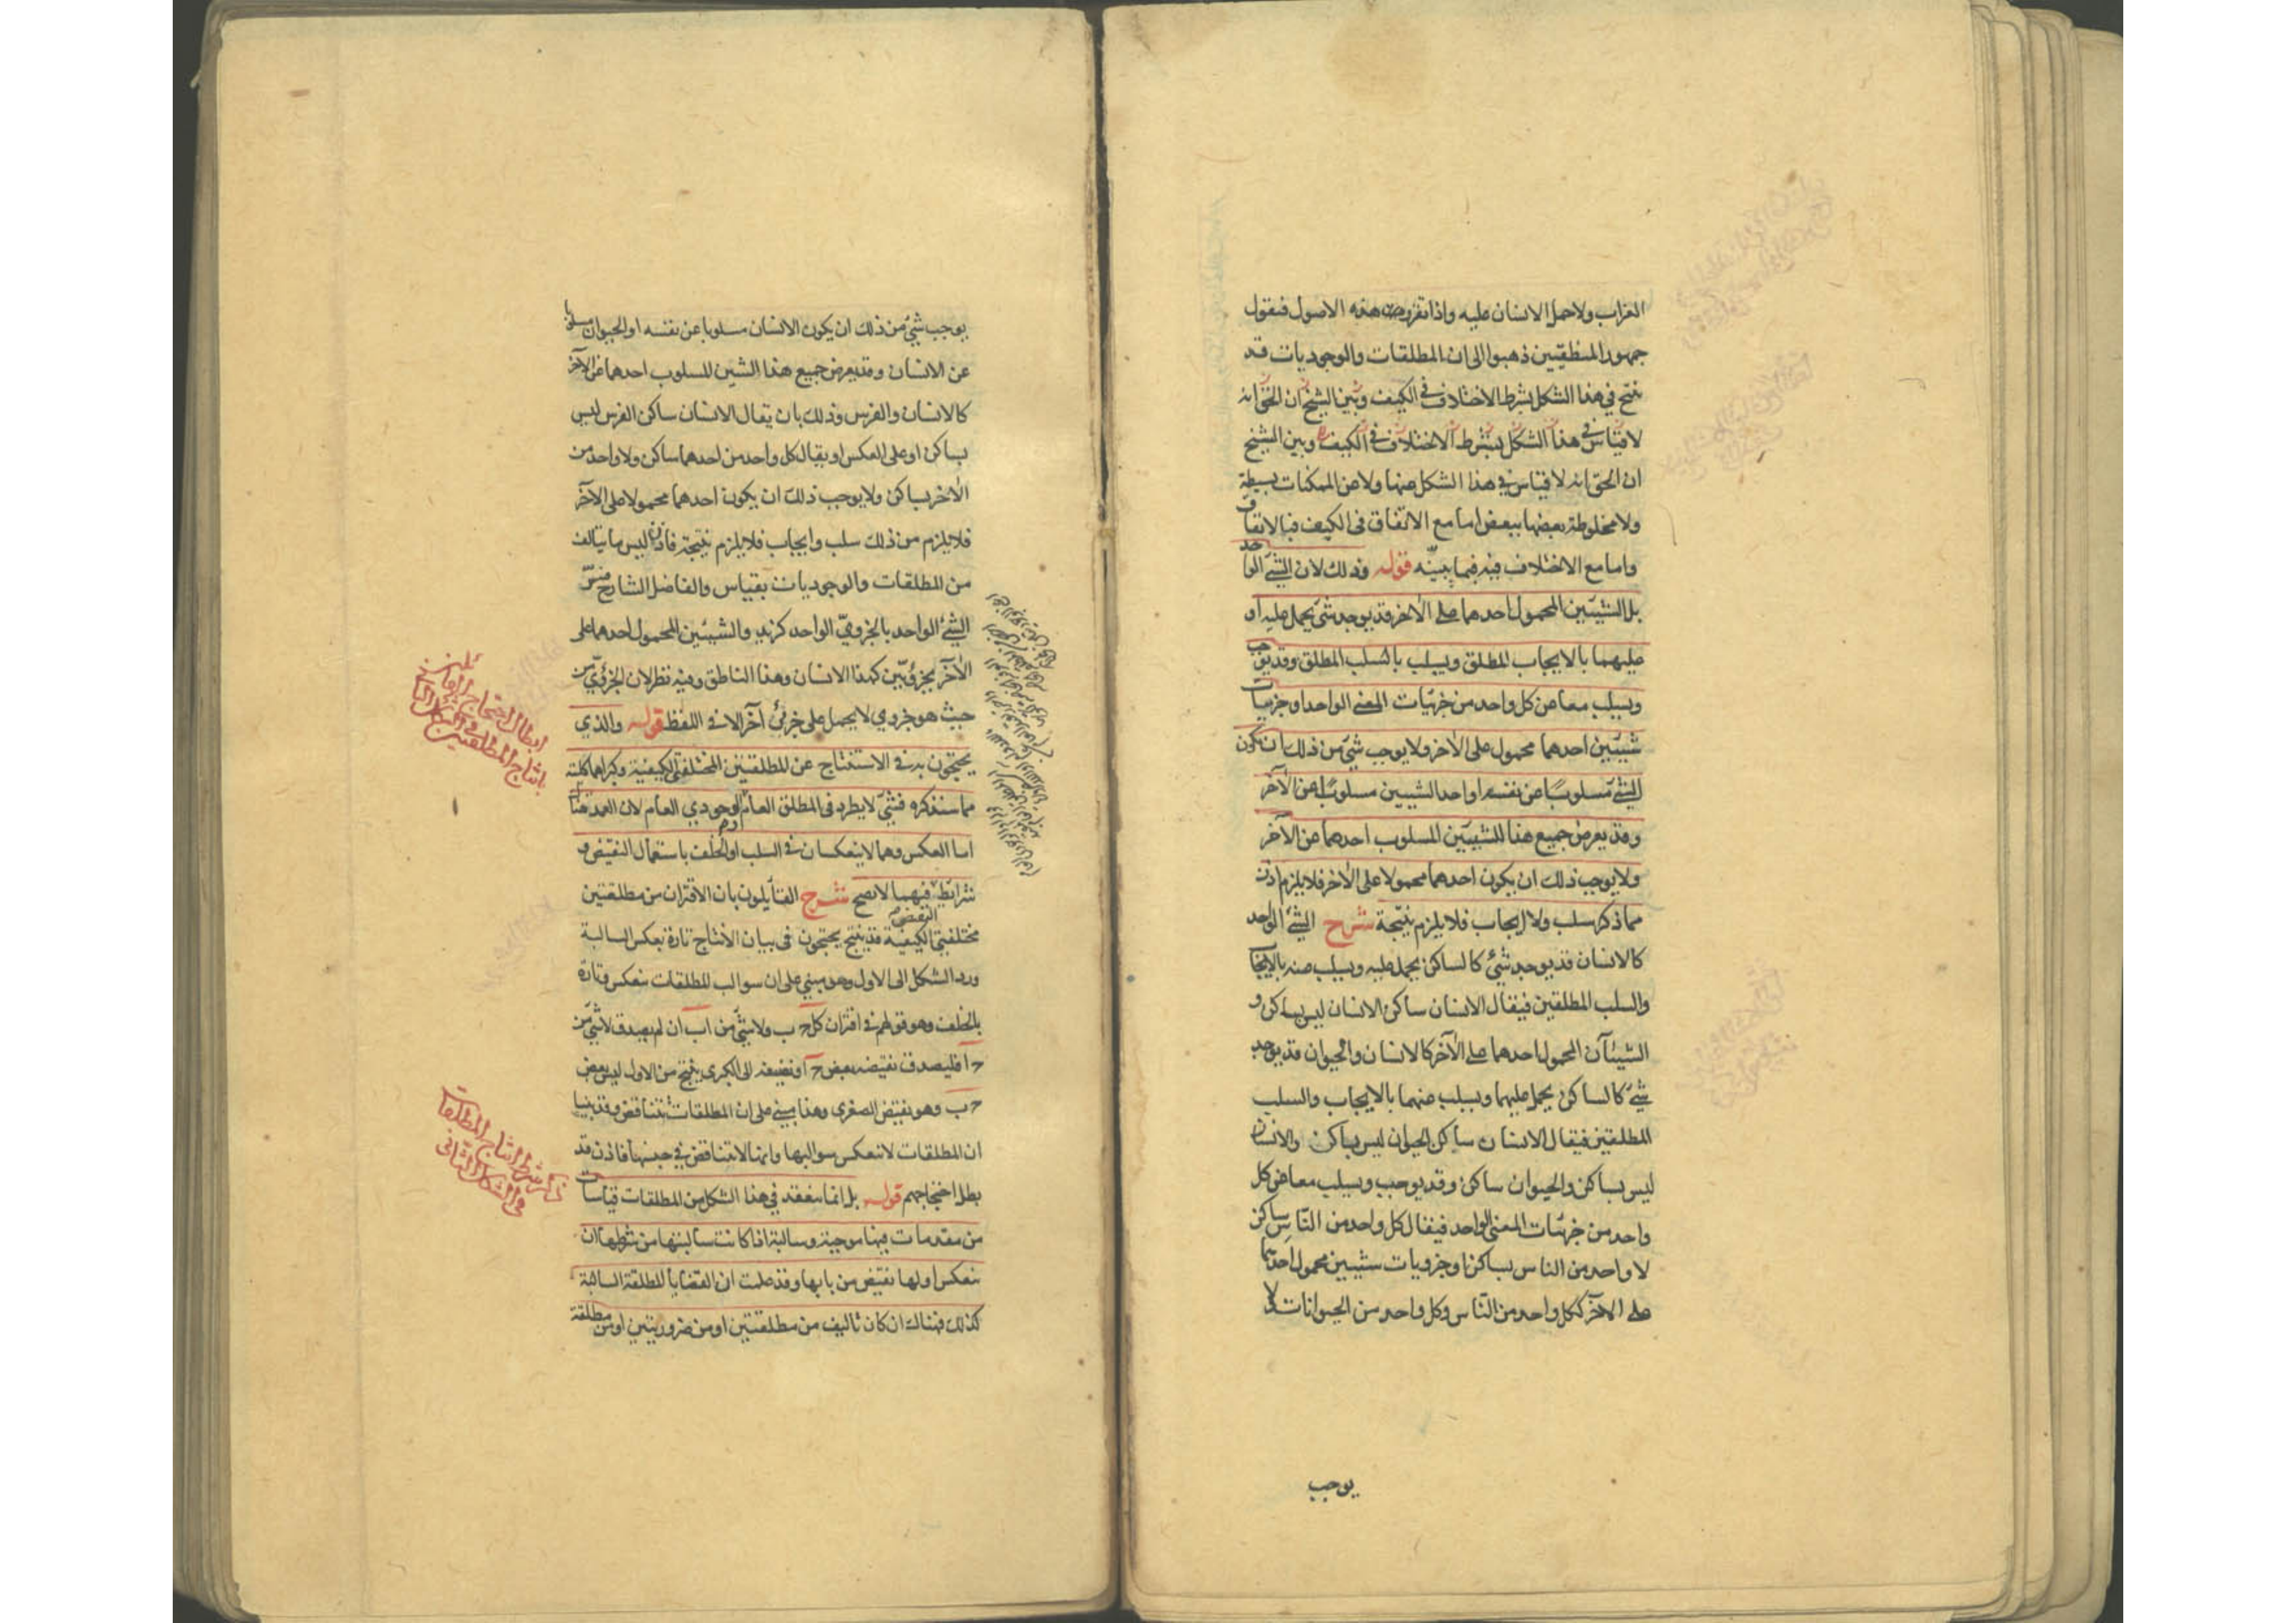 الغراب ولا حمل الانسان عليه واذا تقررت هذه الاصول فنقول
جمهور المنطقيين ذهبوا الى ان المطلقات والوجوديات قد
نتج في هذا الشكل بشرط الاختلاف في الكيف وبين الشيخ ان الحق انه
لا قياس في هذا الشكل بشرط الاختلاف في الكيف وبين الشيخ
ان الحق انه لا قياس في هذا الشكل منها ولا من الممكنات بسيطة
ولا مخلوطة بعضها ببعض اما مع الاتفاق في الكيف فبالاتفاق
واما مع الاختلاف فيه فبما يبينه قوله وذلك لان الشئ الواحد
بل الشيئين المحمول احدهما على الاخر قد يوجد شئ يحمل عليه او
عليهما بالايجاب المطلق ويسلب بالسلب المطلق وقد يوجب
ويسلب معا عن كل واحد من جزئيات المعنى الواحد او جزئيات
شيئين احدهما محمول على الاخر ولا يوجب شئ من ذلك ان يكون
الشئ مسلوبا عن نفسه او احد الشيئين مسلوبا عن الآخر
وقد يعرض جميع هذا للشيئين المسلوب احدهما عن الآخر
ولا يوجب ذلك ان يكون احدهما محمولا على الاخر فلا يلزم اذن
مما ذكر سلب ولا ايجاب فلا يلزم نتيجة شرح الشئ الواحد
كالانسان قد يوجد شئ كالساكن يحمل عليه ويسلب عنه بالايجاب
والسلب المطلقين فيقال الانسان ساكن الانسان ليس بساكن و
الشيئان المحمول احدهما على الآخر كالانسان والحيوان قد يوجد
شئ كالساكن يحمل عليهما ويسلب عنهما بالايجاب والسلب
المطلقين فيقال الانسان ساكن الحيوان ليس بساكن والانسان
ليس بساكن والحيوان ساكن وقد يوجب ويسلب معا عن كل
واحد من جزئيات المعنى الواحد فيقال كل واحد من الناس ساكن
لا واحد من الناس بساكن او جزويات شيئين محمول احدهما
على الآخر ككل واحد من الناس وكل واحد من الحيوانات لا
يوجب
يوجب شئ من ذلك ان يكون الانسان مسلوبا عن نفسه او الحيوان مسلوبا
عن الانسان وقد يعرض جميع هذا الشيئين للسلوب احدهما عن الآخر
كالانسان والفرس وذلك بان يقال الانسان ساكن الفرس ليس
بساكن او على العكس او يقال كل واحد من احدهما ساكن ولا واحد من
الاخر بساكن ولا يوجب ذلك ان يكون احدهما محمولا على الآخر
فلا يلزم من ذلك سلب وايجاب فلا يلزم نتيجة فاذن ليس ما يتالف
من المطلقات والوجوديات بقياس والفاضل الشارح فسر
الشئ الواحد بالجزوي الواحد كزيد والشيئين المحمول احدهما على
الآخر بجزويين كهذا الانسان وهذا الناطق وفيه نظر لان الجزوي من
حيث هو جزوي لا يحمل على جزئي آخر الا في اللفظ قوله والذي
يحتجون به في الاستنتاج عن المطلقتين المختلفتي الكيفية وكبراهما كلية
مما سنذكره فشئ لا يطرد في المطلق العام والوجودي العام لان العمدة هناك
اما العكس وهما لا ينعكسان في السلب او الخلف باستعمال النقيض و
شرائط النقيض فيهما لا تصح شرح القائلون بان الاقتران من مطلقتين
مختلفتي الكيفية قد ينتج يحتجون في بيان الانتاج تارة بعكس السالبة
ورد الشكل الى الاول وهو مبني على ان سوالب المطلقات تنعكس وتارة
بالخلف وهو قولهم في اقتران كل ج ب ولا شئ من ا ب ان لم يصدق لا شئ من
ج ا فليصدق نقيضه بعض ج ا ونضيفه الى الكبرى ينتج من الاول ليس بعض
ج ب وهو نقيض الصغرى وهذا مبني على ان المطلقات تتناقض وقد بينا
ان المطلقات لا تنعكس سوالبها وانها لا تتناقض في جنسها فاذن قد
بطل احتجاجهم قوله بل انما ينعقد في هذا الشكل من المطلقات قياسات
من مقدمات فيها موجبة وسالبة اذا كانت سالبتها من شرطها ان
تنعكس او لها نقيض من بابها وقد علمت ان القضايا المطلقة السالبة
كذلك فهنالك ان كان تاليف من مطلقتين او من ضروريتين او من مطلقة
ابطال احتجاج القائلين
بانتاج المطلقتين في الشكل الثاني
ذكر شرط انتاج المطلقات
في الشكل الثاني